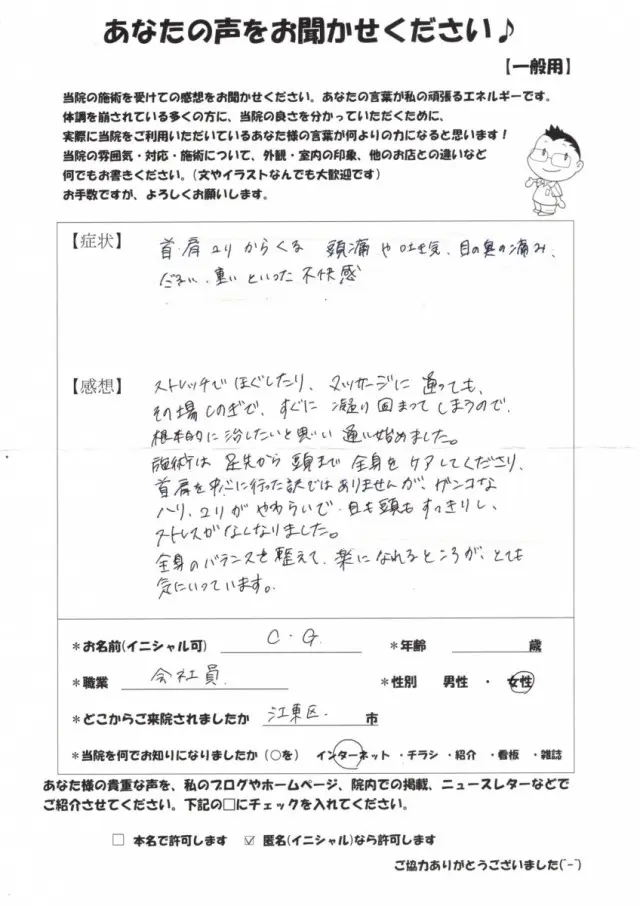 あなたの声をお聞かせください♪
【一般用】
当院の施術を受けての感想をお聞かせください。あなたの言葉が私の頑張るエネルギーです。
体調を崩されている多くの方に、当院の良さを分かっていただくために、
実際に当院をご利用いただいているあなた様の言葉が何よりの力になると思います！
当院の雰囲気・対応・施術について、外観・室内の印象、他のお店との違いなど
何でもお書きください。（文やイラストなんでも大歓迎です）
お手数ですが、よろしくお願いします。
【症状】 首・肩コリからくる 頭痛や吐き気、目の奥の痛み、
だるい、重いといった不快感
【感想】 ストレッチでほぐしたり、マッサージに通っても、
その場しのぎで、すぐに凝り固まってしまうので、
根本的に治したいと思い通い始めました。
施術は足先から頭まで全身をケアしてくださり、
首肩を中心に行った訳ではありませんが、ガンコな
ハリ、コリがやわらいで、目も頭もすっきりし、
ストレスがなくなりました。
全身のバランスを整えて、楽になれるところが、とても
気にいっています。
＊お名前（イニシャル可） C・G. ＊年齢 歳
＊職業 会社員. ＊性別 男性 ・ 女性
＊どこからご来院されましたか 江東区. 市
＊当院を何でお知りになりましたか（○を） インターネット ・チラシ ・紹介 ・看板 ・雑誌
あなた様の貴重な声を、私のブログやホームページ、院内での掲載、ニュースレターなどで
ご紹介させてください。下記の□にチェックを入れてください。
□ 本名で許可します ☑ 匿名（イニシャル）なら許可します
ご協力ありがとうございました(^-^)